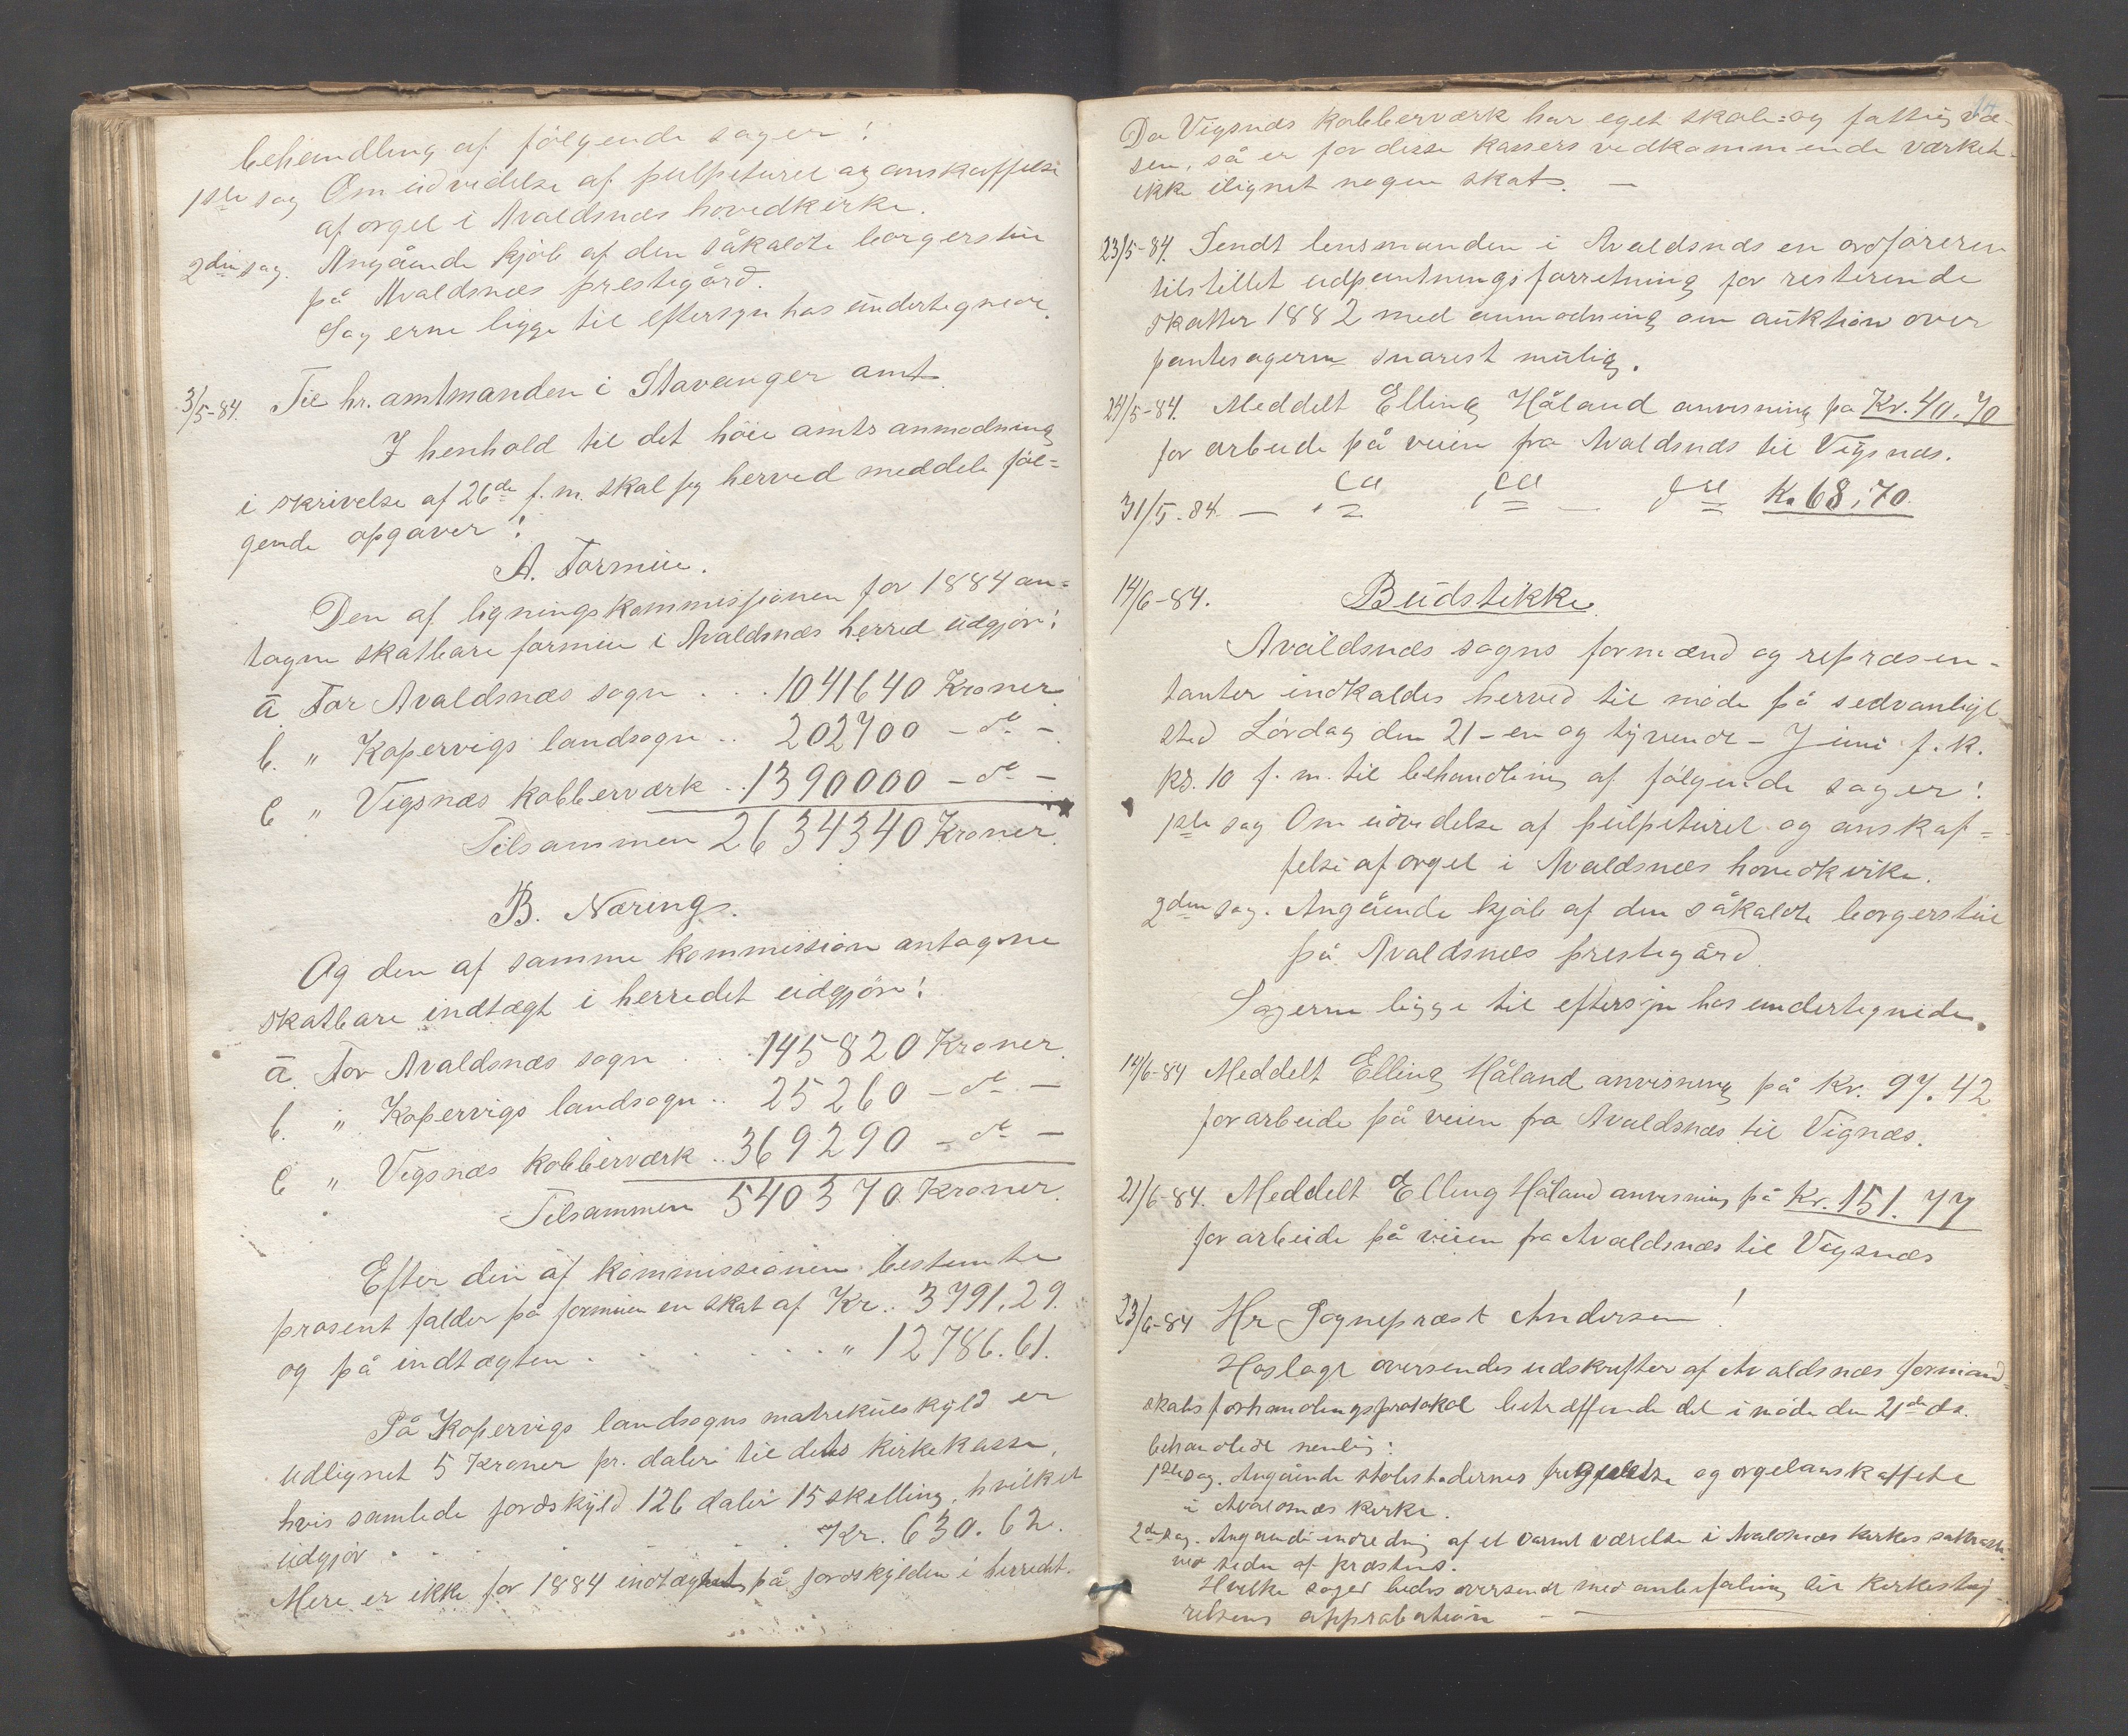 behandling af følgende sager:
1ste sag Om udvidelse af pulpituret og anskaffelse
af orgel i Avaldsnæs hovedkirke.
2den sag. Angående kjøb af den såkaldte borgerstue
på Avaldsnæs prestegård.
Sagerne ligge til eftersyn hos undertegnede.
3/5-84. Til hr. amtmanden i Stavanger amt.
I henhold til det høie amts anmodning
i skrivelse af 26de f. m. skal jeg herved meddele føl=
gende opgaver:
A. Formue.
Den af ligningskommissjonen for 1884 an=
tagne skatbare formue i Avaldsnæs herred udgjør:
a For Avaldsnæs sogn . . . 1041640 Kroner
b. " Kopervigs landsogn .. 202700 - do -
c " Vigsnæs kobberværk .. 1390000 - do -
Tilsammen 2634340 Kroner.
B. Næring.
Og den af samme kommission antagne
skatbare indtægt i herredet udgjør:
a. For Avaldsnæs sogn . . . 145820 Kroner.
b. " Kopervigs landsogn .. 25260 - do -
c " Vigsnæs kobberværk .. 369290 - do -
Tilsammen 540370 Kroner.
Efter den af kommissionen bestemte
prosent falder på formuen en skat af Kr. 3791.29.
og på indtægten . . . . . . " 12786.61.
På Kopervigs landsogns matrikulskyld er
udlignet 5 Kroner pr. daler til dets kirkekasse,
hvis samlede jordskyld 126 daler 15 skilling, hvilket
udgjør . . . . . . Kr. 630.62.
Mere er ikke for 1884 indtægtet på jordskylden i herredet.
14
Da Vigsnæs kobberværk har eget skole= og fattigvæ-
sen, så er for disse kassers vedkommende værket
ikke ilignet nogen skat. —
23/5-84. Sendt lensmanden i Avaldsnæs en ordføreren
tilstillet udpantningsforretning for resterende
skatter 1882 med anmodning om auktion over
pantesagerne snarest mulig.
24/5-84. Meddelt Elling Håland anvisning på Kr. 40.70
for arbeide på veien fra Avaldsnæs til Vigsnæs.
31/5-84 — do do — do Kr 68,70
14/6-84. Budstikke.
Avaldsnæs sogns formænd og repræsen-
tanter indkaldes herved til møde på sedvanligt
sted Lørdag den 21 - en og tyvende - Juni f. k.
kl. 10 f. m. til behandling af følgende sager:
1ste sag Om udvidelse af pulpituret og anskaf=
felse af orgel i Avaldsnæs hovedkirke.
2den sag. Angående kjøb af den såkaldte borgerstue
på Avaldsnæs prestegård.
Sagerne ligge til eftersyn hos undertegnede.
14/6-84 Meddelt Elling Håland anvisning på Kr. 97.42
for arbeide på veien fra Avaldsnæs til Vignæs.
21/6-84. Meddelt Elling Håland anvisning på Kr. 151.77
for arbeide på veien fra Avaldsnæs til Vigsnæs
23/6-84 Hr Sognepræst Andersen!
Hoslagt oversendes udskrifter af Avaldsnæs formand=
skabs forhandlingsprotokol betræffende det i møde den 21de ds.
behandlede nemlig:
1ste sag. Angående stolestadernes og orgelanskaffelse
i Avaldsnæs kirke.
2den sag. Angående indredning af et varmt værelse i Avaldsnæs kirkes
ved siden af præstens.
Hvilke sager bedes oversendt med anbefaling til kirkestyj-
relsens approbation —